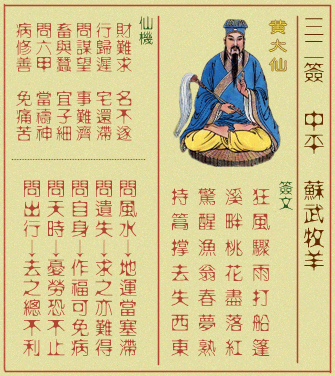 三二簽 中平 蘇武牧羊
黃大仙
簽文
狂風驟雨打船篷
溪畔桃花盡落紅
驚醒漁翁春夢熟
持篙撐去失西東
仙機
財難求 名不遂
行歸遲 宅還滯
問謀望 事難濟
畜與蠶 宜子細
問六甲 當禱神
病修善 免痛苦
問風水→地運當塞滯
問遺失→求之亦難得
問自身→作福可免病
問天時→憂勞恐不止
問出行→去之總不利